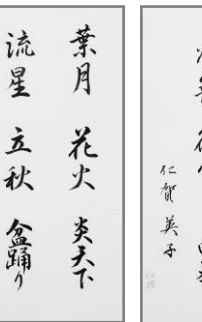 葉月 花火 炎天下
流星 立秋 盆踊り
仁賀 英子